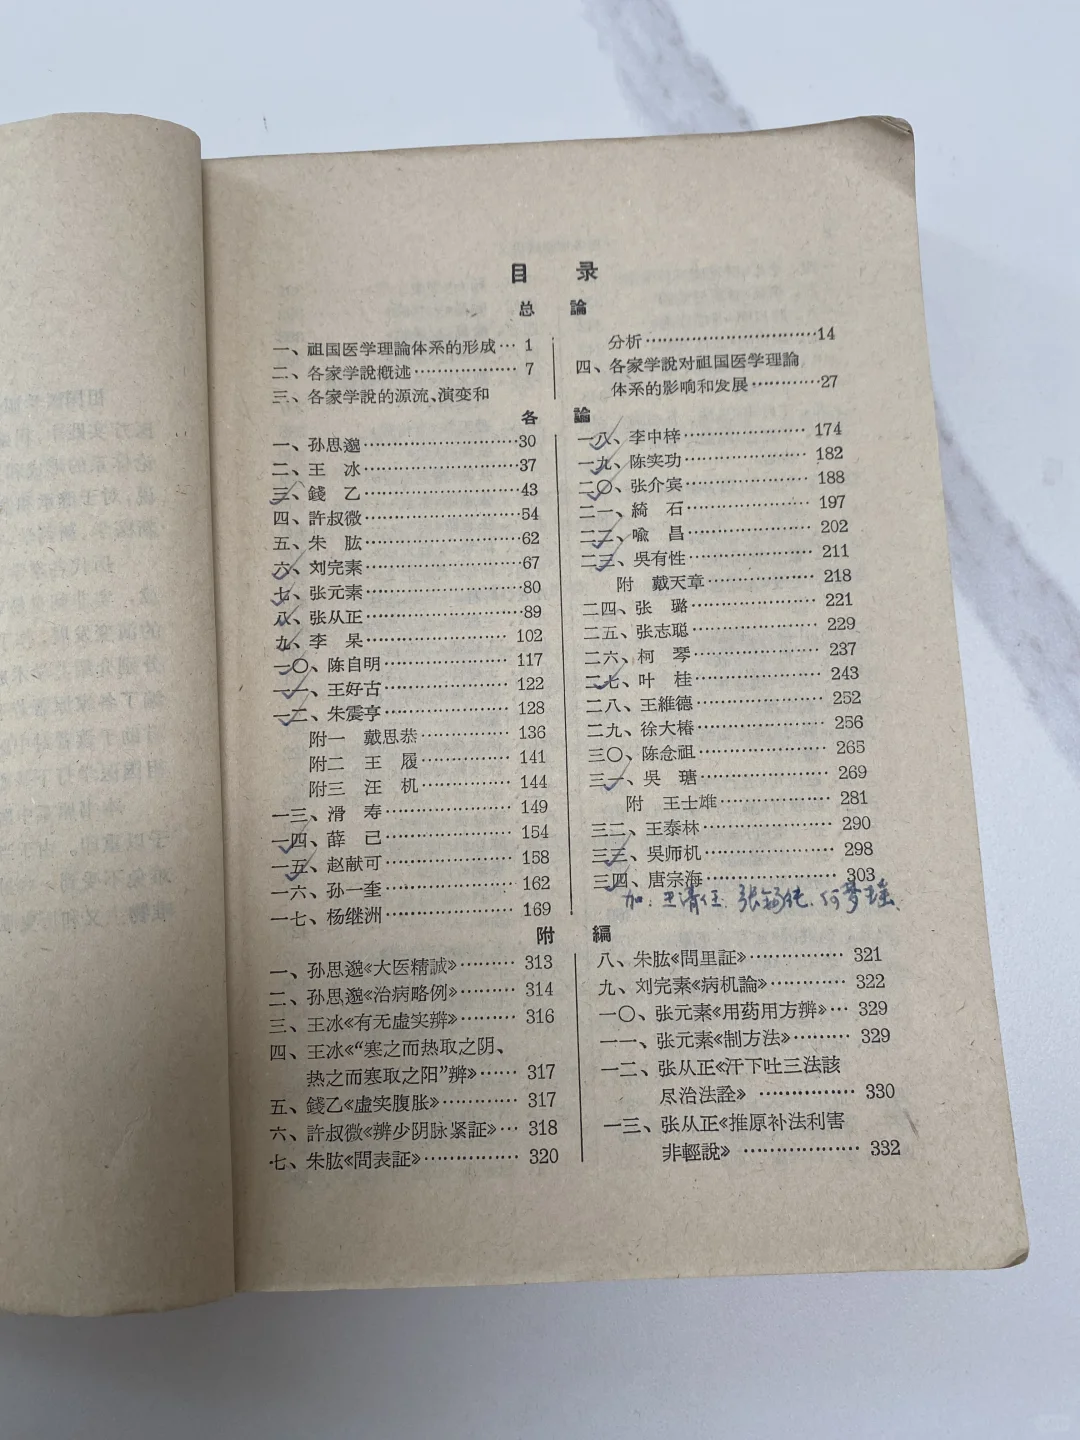 目 录
总 論
一、祖国医学理論体系的形成… 1
二、各家学說概述……………… 7
三、各家学說的源流、演变和
分析…………………………14
四、各家学說对祖国医学理論
体系的影响和发展…………27
各 論
一、孙思邈……………………30
二、王 冰……………………37
三、錢 乙……………………43
四、許叔微……………………54
五、朱 肱……………………62
六、刘完素……………………67
七、张元素……………………80
八、张从正……………………89
九、李 杲…………………… 102
一〇、陈自明………………… 117
一一、王好古………………… 122
一二、朱震亨………………… 128
附一 戴思恭…………… 136
附二 王 履…………… 141
附三 汪 机…………… 144
一三、滑 寿………………… 149
一四、薛 己………………… 154
一五、赵献可………………… 158
一六、孙一奎………………… 162
一七、杨继洲………………… 169
一八、李中梓………………… 174
一九、陈实功………………… 182
二〇、张介宾………………… 188
二一、綺 石………………… 197
二二、喻 昌………………… 202
二三、吳有性………………… 211
附 戴天章……………… 218
二四、张 璐………………… 221
二五、张志聪………………… 229
二六、柯 琴………………… 237
二七、叶 桂………………… 243
二八、王維德………………… 252
二九、徐大椿………………… 256
三〇、陈念祖………………… 265
三一、吳 瑭………………… 269
附 王士雄……………… 281
三二、王泰林………………… 290
三三、吳师机………………… 298
三四、唐宗海………………… 303
加：王清任、张锡纯、何梦瑶、
附 編
一、孙思邈《大医精誠》……… 313
二、孙思邈《治病略例》……… 314
三、王冰《有无虛实辨》……… 316
四、王冰《“寒之而热取之阴、
热之而寒取之阳”辨》…… 317
五、錢乙《虛实腹胀》………… 317
六、許叔微《辨少阴脉紧証》… 318
七、朱肱《問表証》…………… 320
八、朱肱《問里証》…………… 321
九、刘完素《病机論》………… 322
一〇、张元素《用药用方辨》… 329
一一、张元素《制方法》……… 329
一二、张从正《汗下吐三法該
尽治法詮》 …………… 330
一三、张从正《推原补法利害
非輕說》 ……………… 332